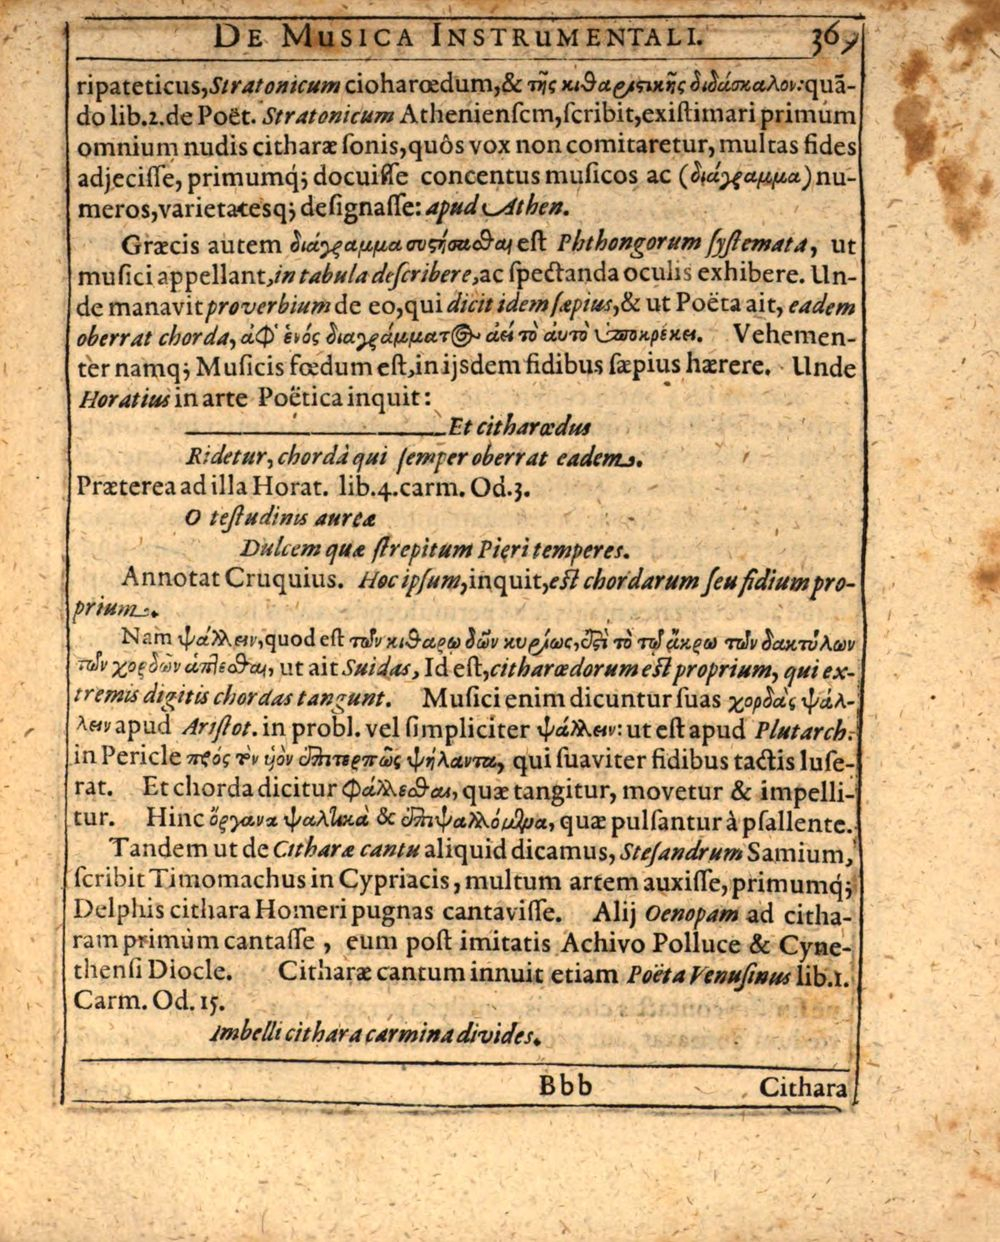 DE MUSICA INSTRUMENTALI. 369
ripateticus, Stratonicum cioharœdum, & τῆς κιθαριστικῆς διδάσκαλον: quā-
do lib.2.de Poët. Stratonicum Athenienſem, ſcribit, exiſtimari primùm
omnium nudis citharæ ſonis, quôs vox non comitaretur, multas fides
adjeciſſe, primumq; docuiſſe concentus muſicos ac (διάγραμμα) nu-
meros, varietatesq; deſignaſſe: apud Athen.
Græcis autem διάγραμμα συστήσασθαι eſt Phthongorum ſyſtemata, ut
muſici appellant, in tabula deſcribere, ac ſpectanda oculis exhibere. Un-
de manavit proverbium de eo, qui dicit idem ſæpius, & ut Poëta ait, eadem
oberrat chorda, ἀφ' ἑνός διαγράμματος ἀεὶ τὸ αὐτὸ ὑποκρέκει. Vehemen-
ter namq; Muſicis fœdum eſt, in ijsdem fidibus ſæpius hærere. Unde
Horatius in arte Poëtica inquit:
Et citharœdus
Ridetur, chordâ qui ſemper oberrat eadem.
Præterea ad illa Horat. lib.4.carm. Od.3.
O teſtudinis aureæ
Dulcem quæ ſtrepitum Pieri temperes.
Annotat Cruquius. Hoc ipſum, inquit, eſt chordarum ſeu fidium pro-
prium.
Nam ψάλλειν, quod eſt τῶν κιθαρωδῶν κυρίως, ἐπὶ τὸ τῷ ἄκρῳ τῶν δακτύλων
τῶν χορδῶν ἅπτεσθαι, ut ait Suidas, Id eſt, citharœdorum eſt proprium, qui ex-
tremis digitis chordas tangunt. Muſici enim dicuntur ſuas χορδὰς ψάλ-
λειν apud Ariſtot. in probl. vel ſimpliciter ψάλλειν: ut eſt apud Plutarch.
in Pericle πρός τὸν υἱὸν ἐπιτερπῶς ψήλαντα, qui ſuaviter fidibus tactis luſe-
rat. Et chorda dicitur ψάλλεσθαι, quæ tangitur, movetur & impelli-
tur. Hinc ὄργανα ψαλτικὰ & ἐπιψαλλόμενα, quæ pulſantur à pſallente.
Tandem ut de Citharæ cantu aliquid dicamus, Steſandrum Samium,
ſcribit Timomachus in Cypriacis, multum artem auxiſſe, primumq;
Delphis cithara Homeri pugnas cantaviſſe. Alij Oenopam ad citha-
ram primùm cantaſſe, eum poſt imitatis Achivo Polluce & Cyne-
thenſi Diocle. Citharæ cantum innuit etiam Poëta Venuſinus lib.1.
Carm. Od. 15.
Imbelli cithara carmina divides.
Bbb Cithara